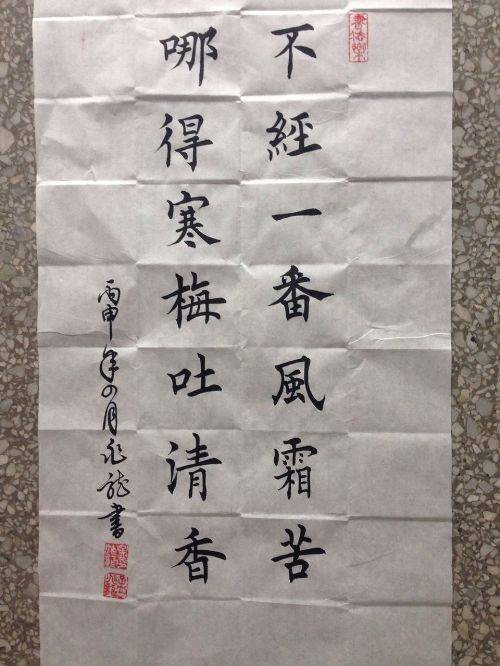 不經一番風霜苦
哪得寒梅吐清香
丙申年四月永龍書